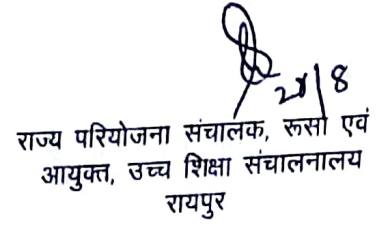 राज्य परियोजना संचालक, रूसा एवं
आयुक्त, उच्च शिक्षा संचालनालय
रायपुर